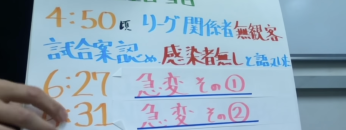 4:50頃 リーグ関係者 無観客
試合案認め 感染者無しと語
6:27 急変 その①
:31 急変 その②